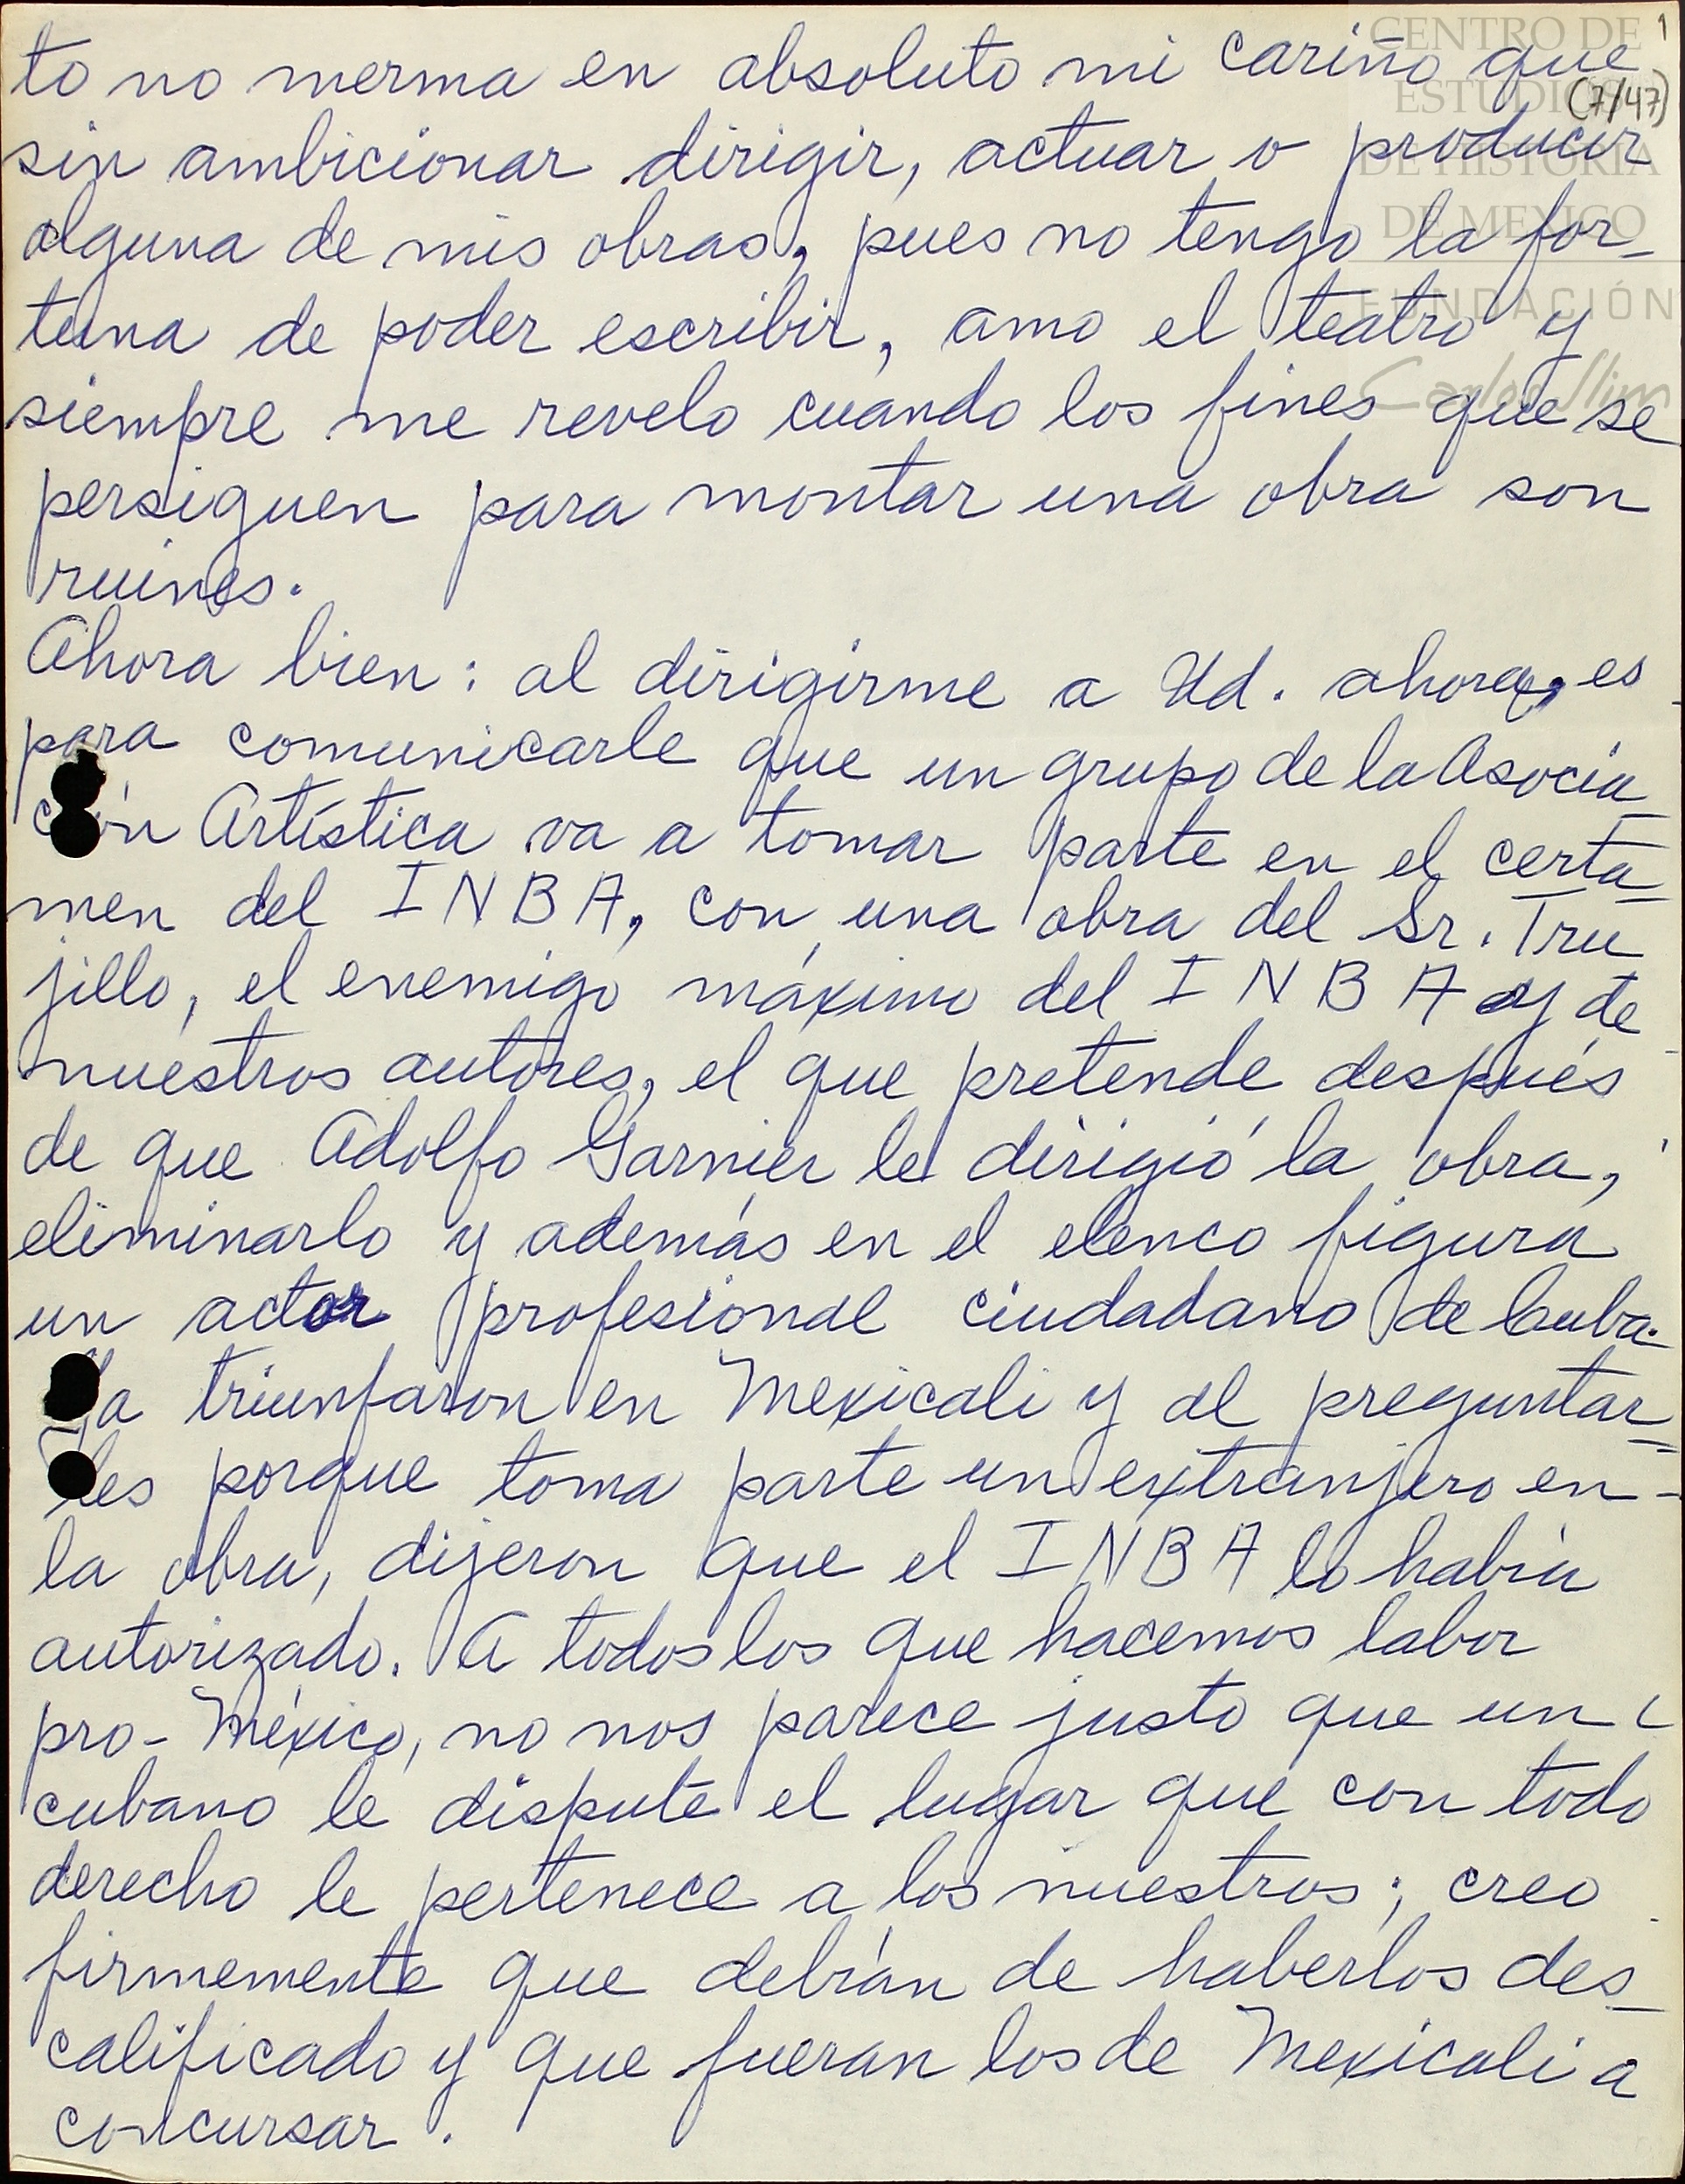 CENTRO DE
ESTUDIOS
DE HISTORIA
DE MEXICO
FUNDACIÓN
Carlos Slim
1
(7/47)
to no merma en absoluto mi cariño que
sin ambicionar dirigir, actuar o producir
alguna de mis obras, pues no tengo la for-
tuna de poder escribir, amo el teatro y
siempre me revelo cuando los fines que se
persiguen para montar una obra son
ruines.
Ahora bien: al dirigirme a Ud. ahora, es
para comunicarle que un grupo de la Asocia-
ción Artística va a tomar parte en el certa-
men del INBA, con una obra del Sr. Tru
jillo, el enemigo máximo del INBA y de
nuestros autores, el que pretende después
de que Adolfo Garnier le dirigió la obra,
eliminarlo y además en el elenco figura
un actor profesional ciudadano de Cuba.
Ya triunfaron en Mexicali y al preguntar-
les porque toma parte un extranjero en-
la obra, dijeron que el INBA lo había
autorizado. A todos los que hacemos labor
pro-México, no nos parece justo que un
cubano le dispute el lugar que con todo
derecho le pertenece a los nuestros; creo
firmemente que debían de haberlos des-
calificado y que fueran los de Mexicali a
concursar.